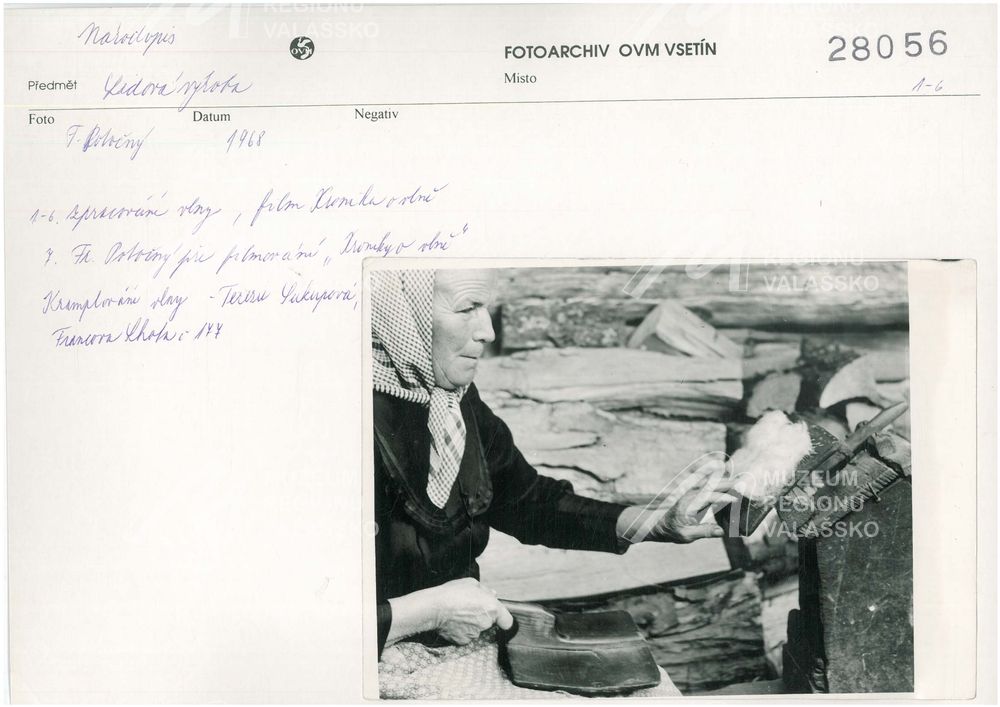 Národopis
OVM
FOTOARCHIV OVM VSETÍN
28056
Předmět Lidová výroba
Místo
1-6
Foto Datum Negativ
F. Potočný 1968
1-6. zpracování vlny, film Kronika o vlně
7. Fr. Potočný při filmování „Kroniky o vlně"
Kramplování vlny - Terezie Sukupová,
Francova Lhota č 177
REGIONU
VALAŠSKO
REGIONU
VALAŠSKO
REGIONU
VALAŠSKO
MUZEUM
REGIONU
VALAŠSKO